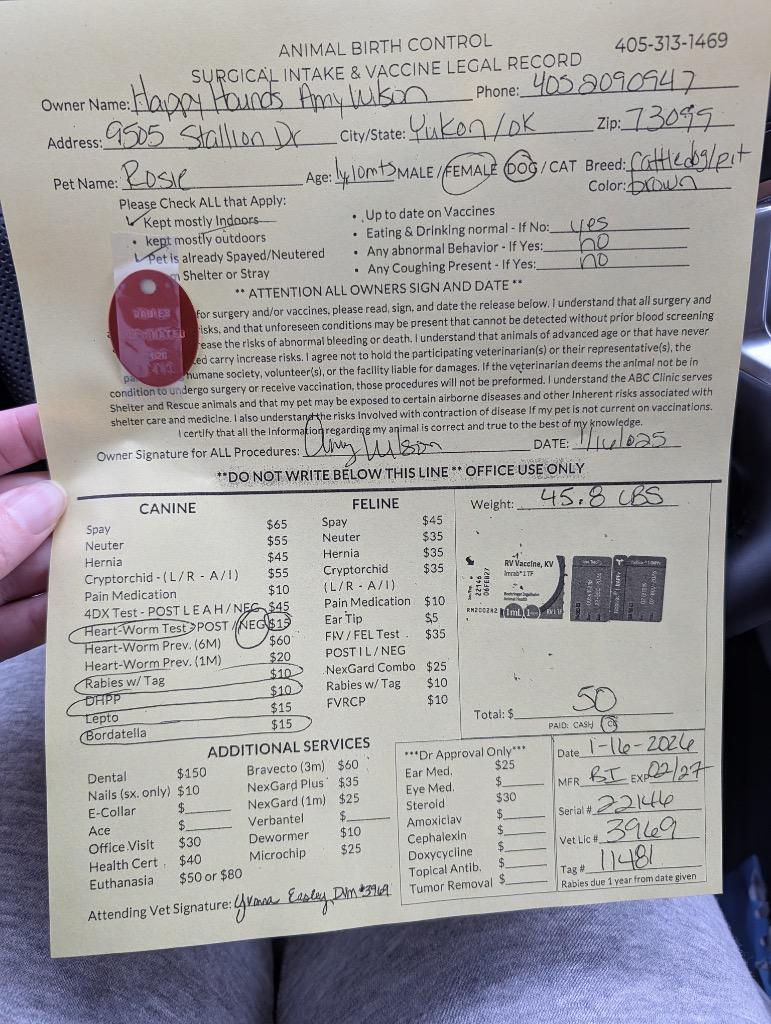 ANIMAL BIRTH CONTROL
405-313-1469
SURGICAL INTAKE & VACCINE LEGAL RECORD
Owner Name: Happy Hounds Amy Wilson Phone: 405 2090947
Address: 9505 Stallion Dr City/State: Yukon/OK Zip: 73099
Pet Name: Rosie Age: 1y10mts MALE / FEMALE DOG / CAT Breed: Cattledog/pit
Color: brown
Please Check ALL that Apply:
Kept mostly Indoors
• kept mostly outdoors
Pet is already Spayed/Neutered
Shelter or Stray
• Up to date on Vaccines
• Eating & Drinking normal - If No: yes
• Any abnormal Behavior - If Yes: no
• Any Coughing Present - If Yes: no
** ATTENTION ALL OWNERS SIGN AND DATE **
for surgery and/or vaccines, please read, sign, and date the release below. I understand that all surgery and
risks, and that unforeseen conditions may be present that cannot be detected without prior blood screening
ease the risks of abnormal bleeding or death. I understand that animals of advanced age or that have never
ed carry increase risks. I agree not to hold the participating veterinarian(s) or their representative(s), the
humane society, volunteer(s), or the facility liable for damages. If the veterinarian deems the animal not be in
condition to undergo surgery or receive vaccination, those procedures will not be preformed. I understand the ABC Clinic serves
Shelter and Rescue animals and that my pet may be exposed to certain airborne diseases and other Inherent risks associated with
shelter care and medicine. I also understand the risks Involved with contraction of disease If my pet is not current on vaccinations.
I certify that all the Information regarding my animal is correct and true to the best of my knowledge.
Owner Signature for ALL Procedures: Amy Wilson DATE:
**DO NOT WRITE BELOW THIS LINE ** OFFICE USE ONLY
CANINE
Spay $65
Neuter $55
Hernia $45
Cryptorchid - (L/R - A/I) $55
Pain Medication $10
4DX Test - POST L E A H / NEG $45
Heart-Worm Test POST / NEG $15
Heart-Worm Prev. (6M) $60
Heart-Worm Prev. (1M) $20
Rabies w/ Tag $10
DHPP $10
Lepto $15
Bordatella $15
FELINE
Spay $45
Neuter $35
Hernia $35
Cryptorchid $35
(L/R - A/I)
Pain Medication $10
Ear Tip $5
FIV / FEL Test $35
POST I L / NEG
NexGard Combo $25
Rabies w/ Tag $10
FVRCP $10
Weight: 45.8 LBS
22146
06FEB27
RV Vaccine, KV
Imrab® 1 TF
1mL
Total: $ 50
PAID: CASH / CC
ADDITIONAL SERVICES
Dental $150
Nails (sx. only) $10
E-Collar $
Ace $
Office Visit $30
Health Cert. $40
Euthanasia $50 or $80
Bravecto (3m) $60
NexGard Plus $35
NexGard (1m) $25
Verbantel $
Dewormer $10
Microchip $25
***Dr Approval Only***
Ear Med. $25
Eye Med. $
Steroid $30
Amoxiclav $
Cephalexin $
Doxycycline $
Topical Antib. $
Tumor Removal $
Date 1-16-2026
MFR BI EXP 02/27
Serial # 22146
Vet Lic # 3969
Tag # 11481
Rabies due 1 year from date given
Attending Vet Signature: Yvonne Easley DVM #3969